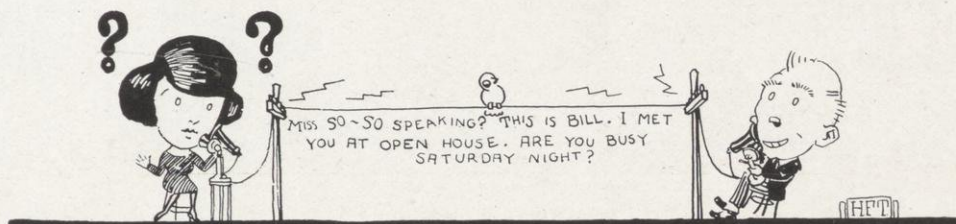 ? ?
MISS SO-SO SPEAKING? THIS IS BILL. I MET
YOU AT OPEN HOUSE. ARE YOU BUSY
SATURDAY NIGHT?
HFT